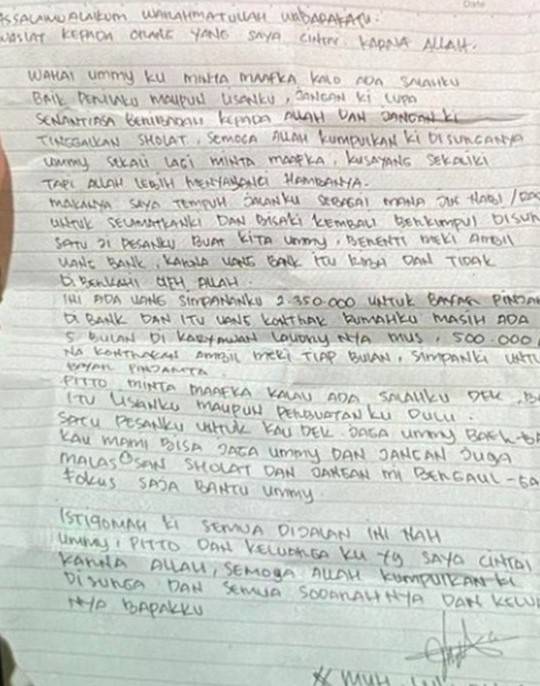 Date
ASSALAMUALAIKUM WARAHMATULLAH WABARAKATU.
WASIAT KEPADA ORANG YANG SAYA CINTAI KARNA ALLAH.
WAHAI UMMY KU MINTA MAAFKA KALO ADA SALAHKU
BAIK PERILAKU MAUPUN LISANKU, JANGAN KI LUPA
SENANTIASA BERIBADAH KEPADA ALLAH DAN JANGAN KI
TINGGALKAN SHOLAT, SEMOGA ALLAH KUMPULKAN KI DISURGANYA
UMMY SEKALI LAGI MINTA MAAFKA, KUSAYANG SEKALIKI
TAPI ALLAH LEBIH MENYAYANGI HAMBANYA.
MAKANYA SAYA TEMPUH JALANKU SEBAGAI MANA JLN NABI /
UNTUK SELAMATKANKI DAN BISAKI KEMBALI BERKUMPUL
SATU JI PESANKU BUAT KITA UMMY, BERENTI MEKI AMBIL
UANG BANK, KARNA UANG BANK ITU RIBA DAN TIDAK
DIBERKAHI OLEH ALLAH.
INI ADA UANG SIMPANANKU 2.350.000 UNTUK BAYAR
DI BANK DAN ITU UANG KONTRAK RUMAHKU MASIH ADA
5 BULAN DI KARYAWAN LAUNDRY NYA MUS, 500.000
NA KONTRAKAN AMBIL MEKI TIAP BULAN, SIMPANKI
BAYAR PINJAMTA.
PITTO MINTA MAAFKA KALAU ADA SALAHKU DEK,
ITU LISANKU MAUPUN PERBUATAN KU DULU.
SATU PESANKU UNTUK KAU DEK JAGA UMMY BAEK-
KAU MAMI BISA JAGA UMMY DAN JANGAN JUGA
MALAS SHOLAT DAN JANGAN MI BERGAUL-
FOKUS SAJA BANTU UMMY.
ISTIQOMAH KI SEMUA DIJALAN INI NAH
UMMY, PITTO DAN KELUARGA KU YG SAYA CINTAI
KARNA ALLAH, SEMOGA ALLAH KUMPULKAN KI
DISURGA DAN SEMUA SODARAHNYA DAN
NYA BAPAKKU
MUH.